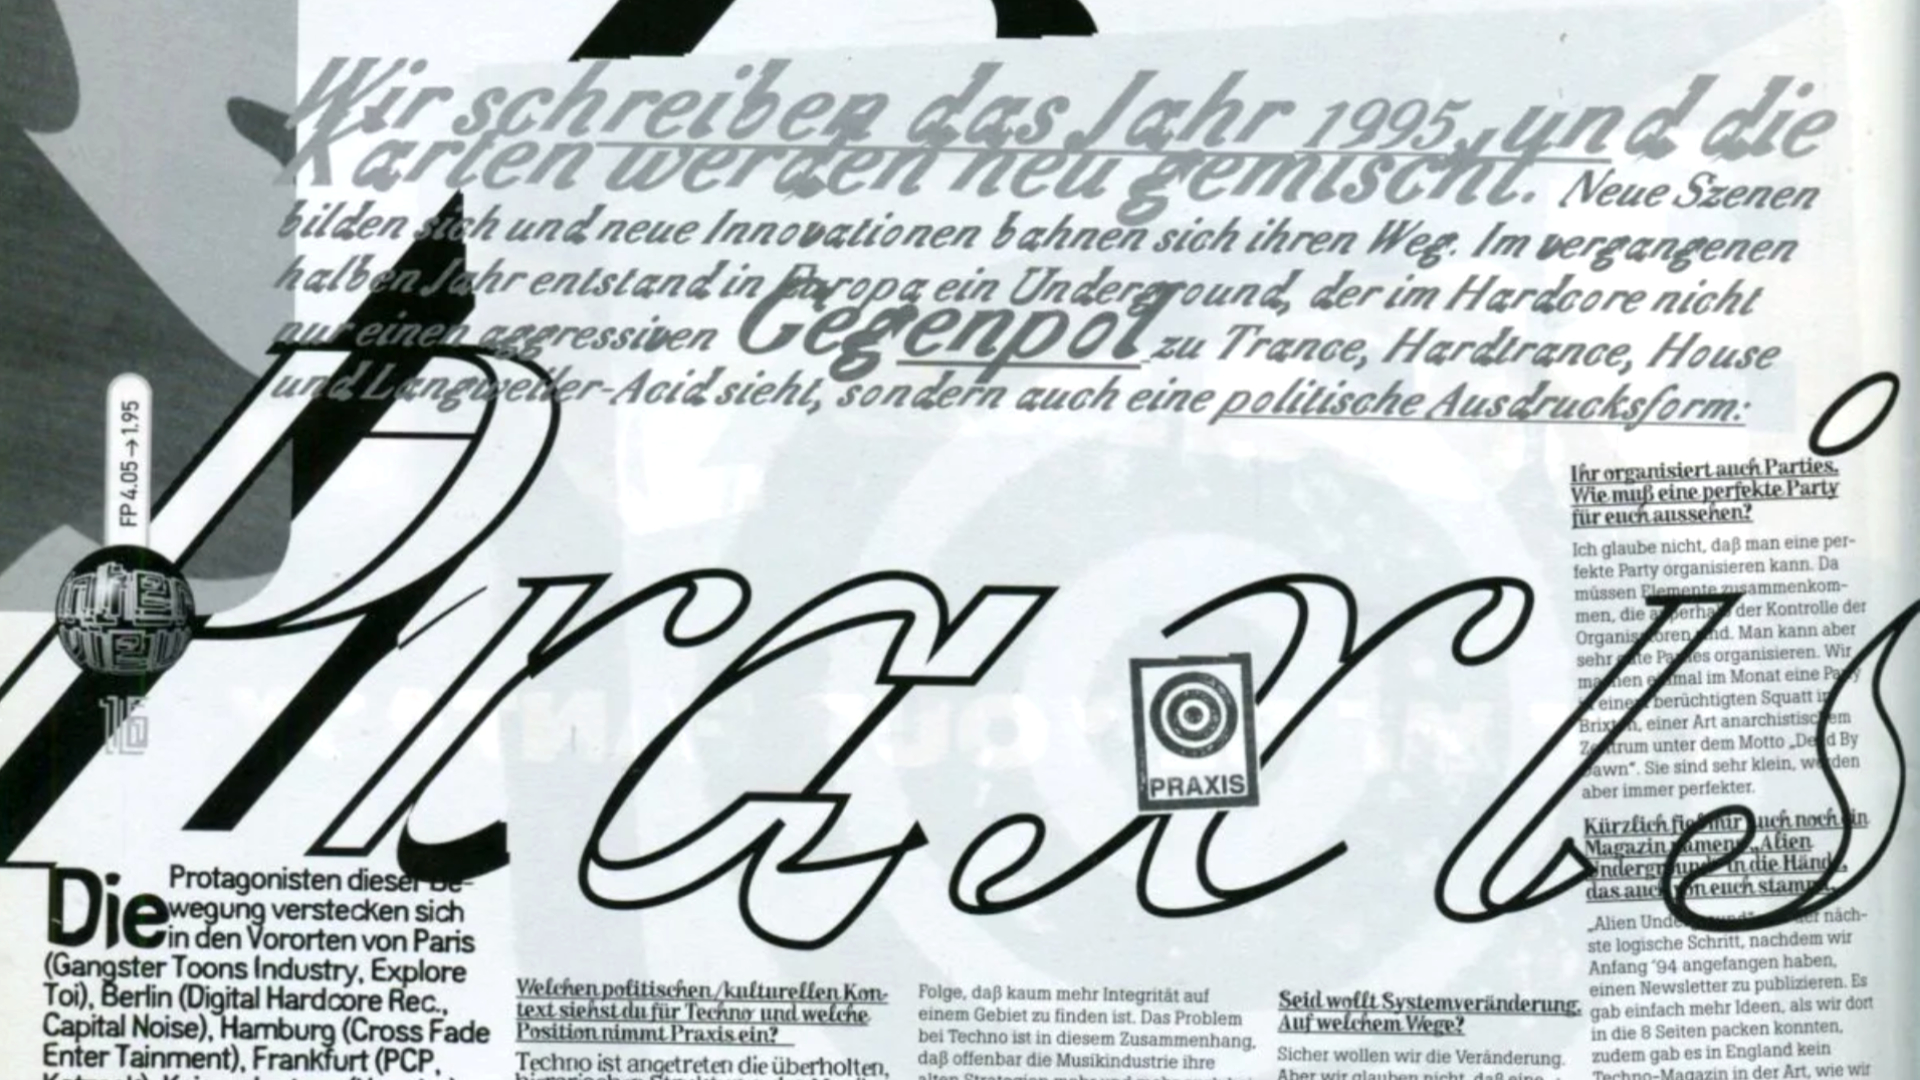 Wir schreiben das Jahr 1995, und die
Karten werden neu gemischt. Neue Szenen
bilden sich und neue Innovationen bahnen sich ihren Weg. Im vergangenen
halben Jahr entstand in Europa ein Underground, der im Hardcore nicht
nur einen aggressiven Gegenpol zu Trance, Hardtrance, House
und Langweiler-Acid sieht, sondern auch eine politische Ausdrucksform:
FP 4.05 → 1.95
16
Praxis
PRAXIS
Die Protagonisten dieser Be-
wegung verstecken sich
in den Vororten von Paris
(Gangster Toons Industry, Explore
Toi), Berlin (Digital Hardcore Rec.,
Capital Noise), Hamburg (Cross Fade
Enter Tainment), Frankfurt (PCP,
Welchen politischen/kulturellen Kon-
text siehst du für Techno und welche
Position nimmt Praxis ein?
Techno ist angetreten die überholten,
Folge, daß kaum mehr Integrität auf
einem Gebiet zu finden ist. Das Problem
bei Techno ist in diesem Zusammenhang,
daß offenbar die Musikindustrie ihre
Seid wollt Systemveränderung.
Auf welchem Wege?
Sicher wollen wir die Veränderung.
Aber wir glauben nicht, daß eine
Ihr organisiert auch Parties.
Wie muß eine perfekte Party
für euch aussehen?
Ich glaube nicht, daß man eine per-
fekte Party organisieren kann. Da
müssen Elemente zusammenkom-
men, die außerhalb der Kontrolle der
Organisatoren sind. Man kann aber
sehr gute Parties organisieren. Wir
machen einmal im Monat eine Party
in einem berüchtigten Squatt in
Brixton, einer Art anarchistischem
Zentrum unter dem Motto „Dead By
Dawn“. Sie sind sehr klein, werden
aber immer perfekter.
Kürzlich fiel mir auch noch ein
Magazin namens „Alien
Underground“ in die Hände,
das auch von euch stammt.
„Alien Underground“ war der näch-
ste logische Schritt, nachdem wir
Anfang '94 angefangen haben,
einen Newsletter zu publizieren. Es
gab einfach mehr Ideen, als wir dort
in die 8 Seiten packen konnten,
zudem gab es in England kein
Techno-Magazin in der Art, wie wir